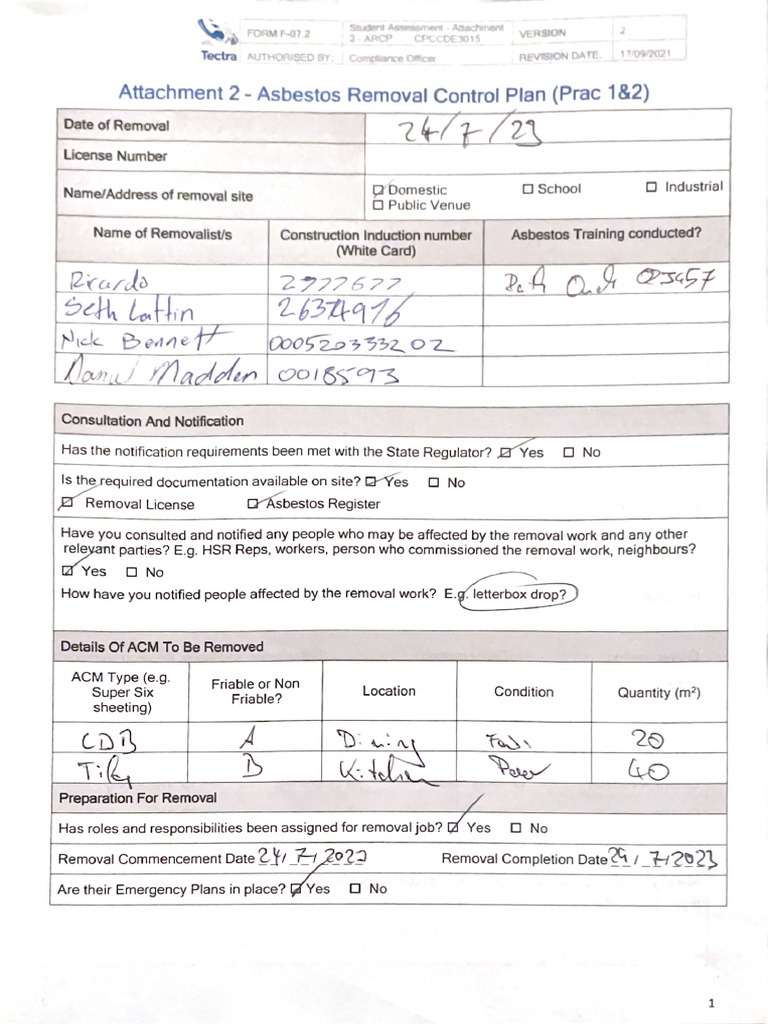 Tectra
FORM F-07.2
Student Assessment - Attachment 2 - ARCP CPCCDE3015
VERSION
2
AUTHORISED BY:
Compliance Officer
REVISION DATE.
17/09/2021
Attachment 2 - Asbestos Removal Control Plan (Prac 1&2)
Date of Removal 24/7/23
License Number
Name/Address of removal site
Domestic School Industrial
Public Venue
Name of Removalist/s Construction Induction number (White Card) Asbestos Training conducted?
Ricardo 2977677
Seth Lattin 26374976
Nick Bennett 000520333202
Daniel Madden 00185973
Consultation And Notification
Has the notification requirements been met with the State Regulator? Yes No
Is the required documentation available on site? Yes No
Removal License Asbestos Register
Have you consulted and notified any people who may be affected by the removal work and any other
relevant parties? E.g. HSR Reps, workers, person who commissioned the removal work, neighbours?
Yes No
How have you notified people affected by the removal work? E.g. letterbox drop?
Details Of ACM To Be Removed
ACM Type (e.g. Super Six sheeting) Friable or Non Friable? Location Condition Quantity (m²)
CDB A Dining 20
B Kitchen 40
Preparation For Removal
Has roles and responsibilities been assigned for removal job? Yes No
Removal Commencement Date 24/7/2023 Removal Completion Date 29/7/2023
Are their Emergency Plans in place? Yes No
1